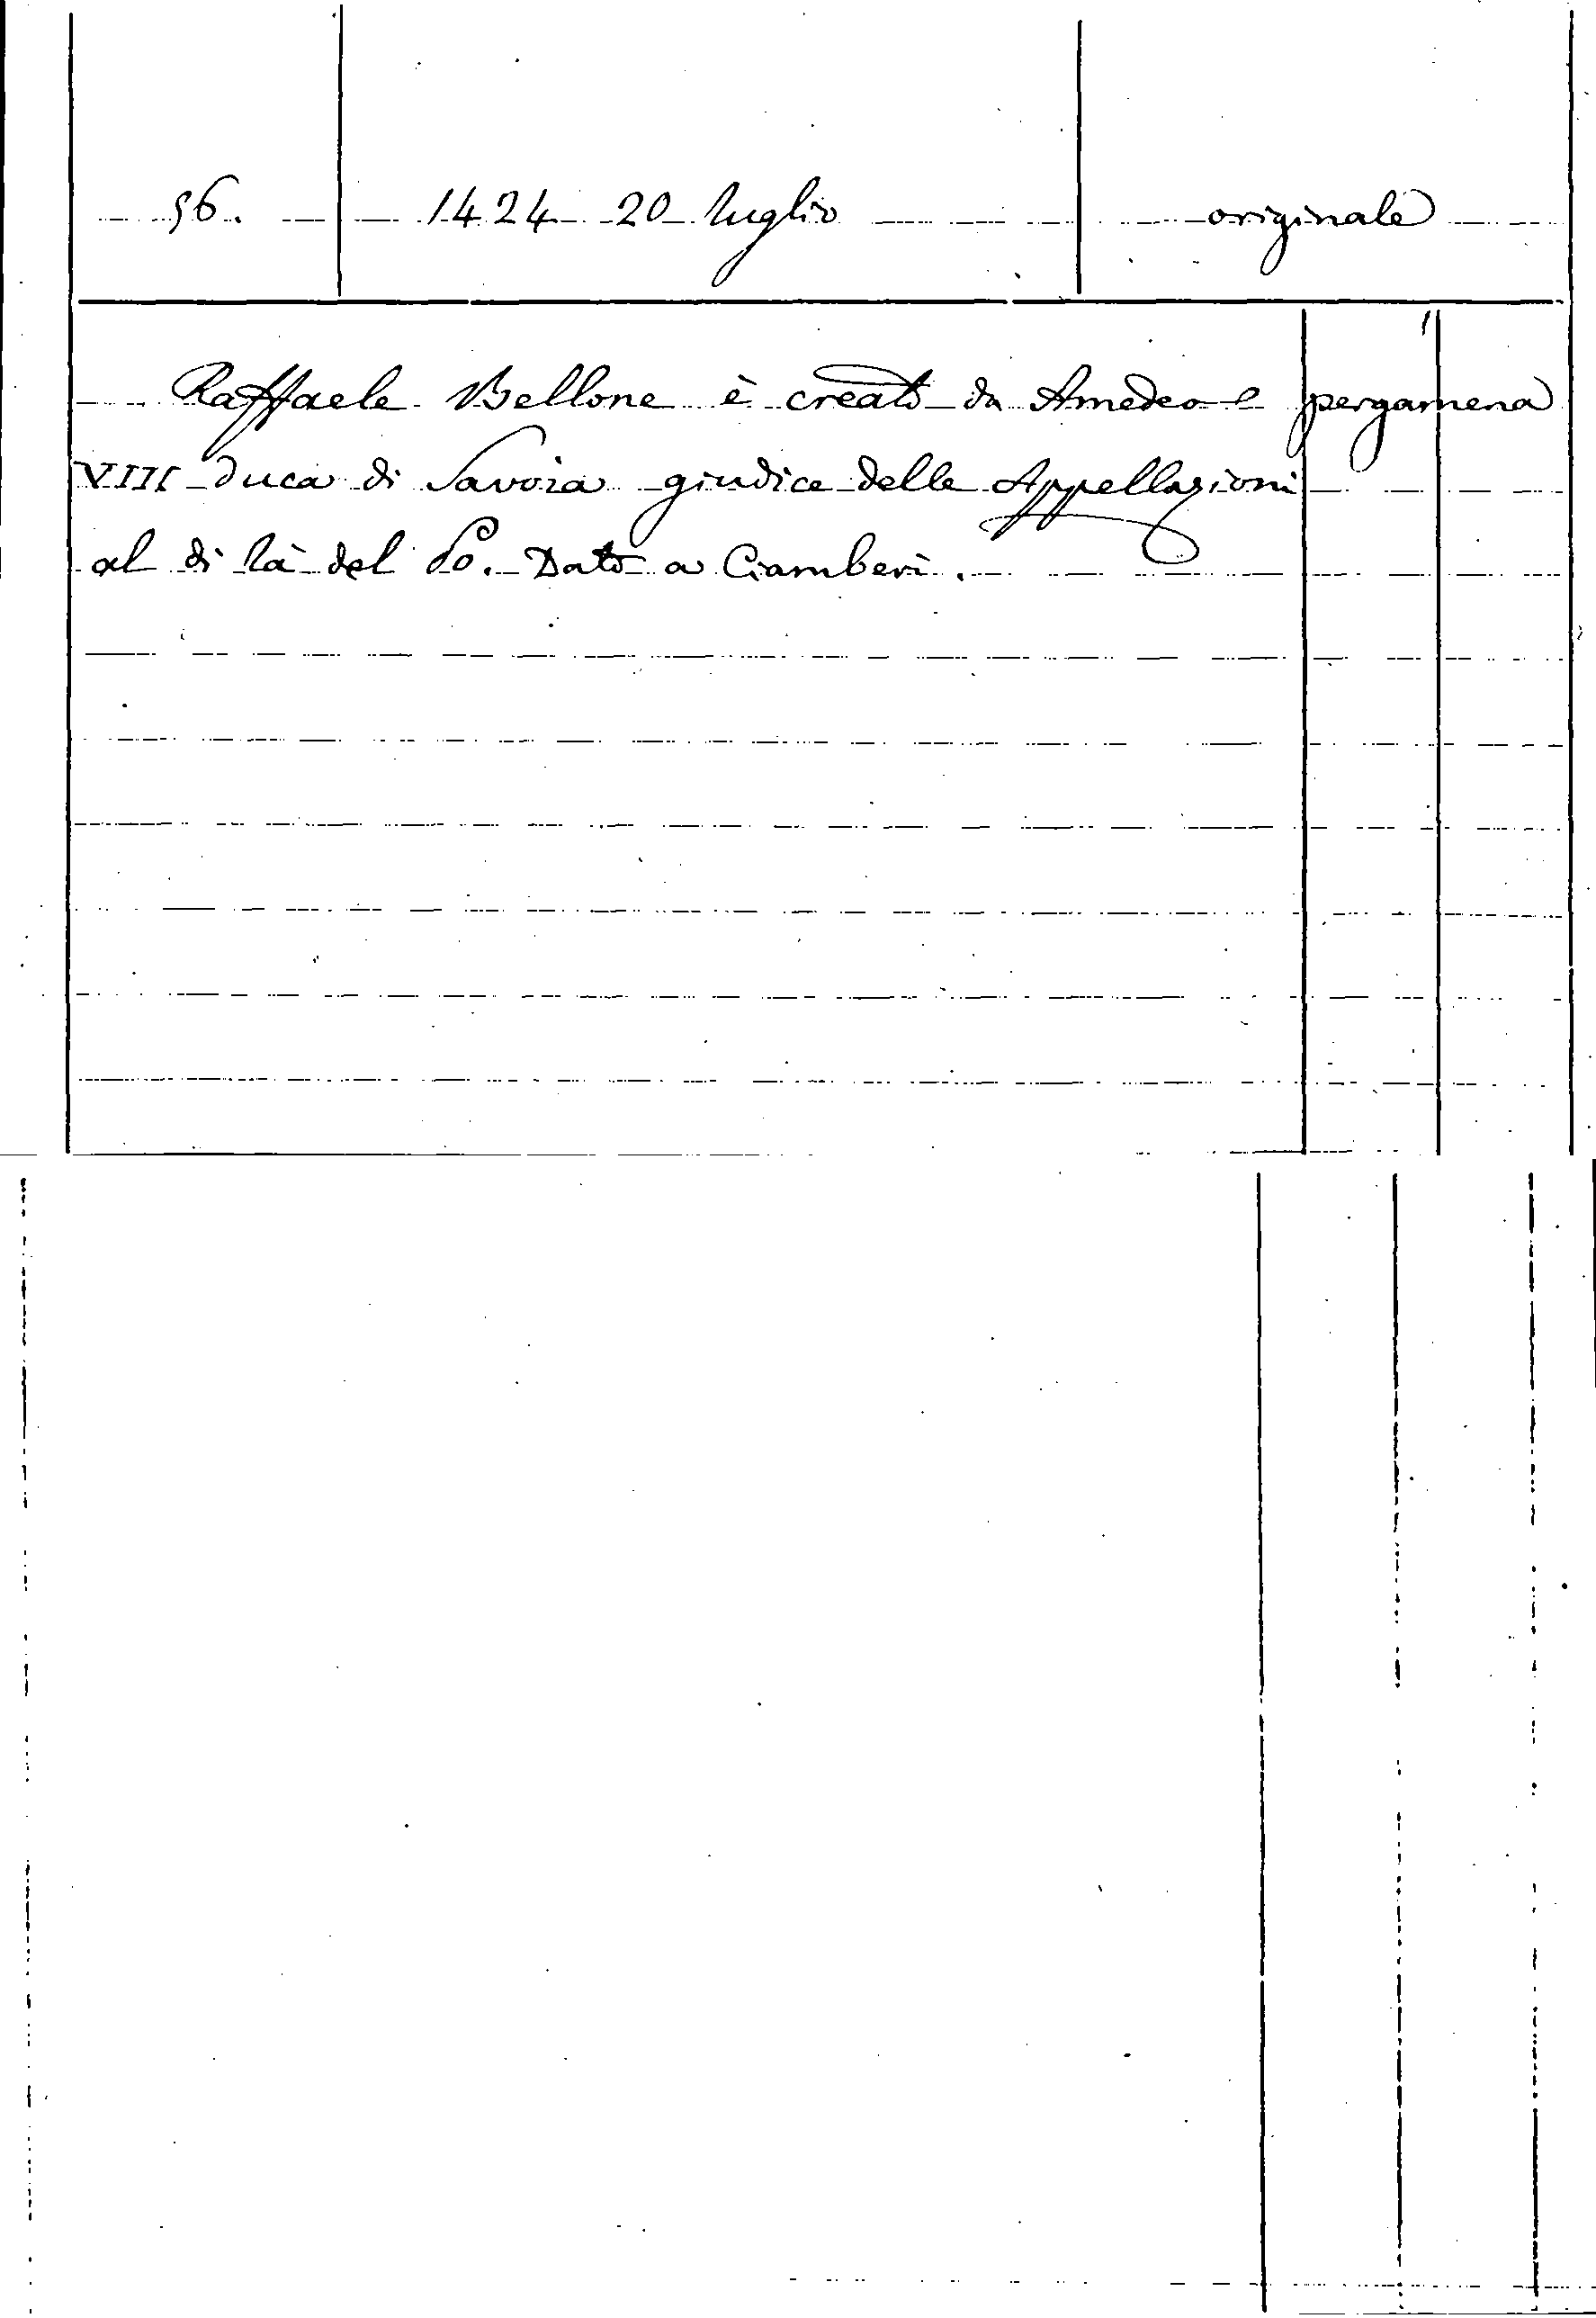 56. 1424 20 luglio originale
Raffaele Bellone è creato da Amedeo pergamena
VIII duca di Savoia giudice delle Appellazioni
al di là del Po. Dato a Ciamberì.